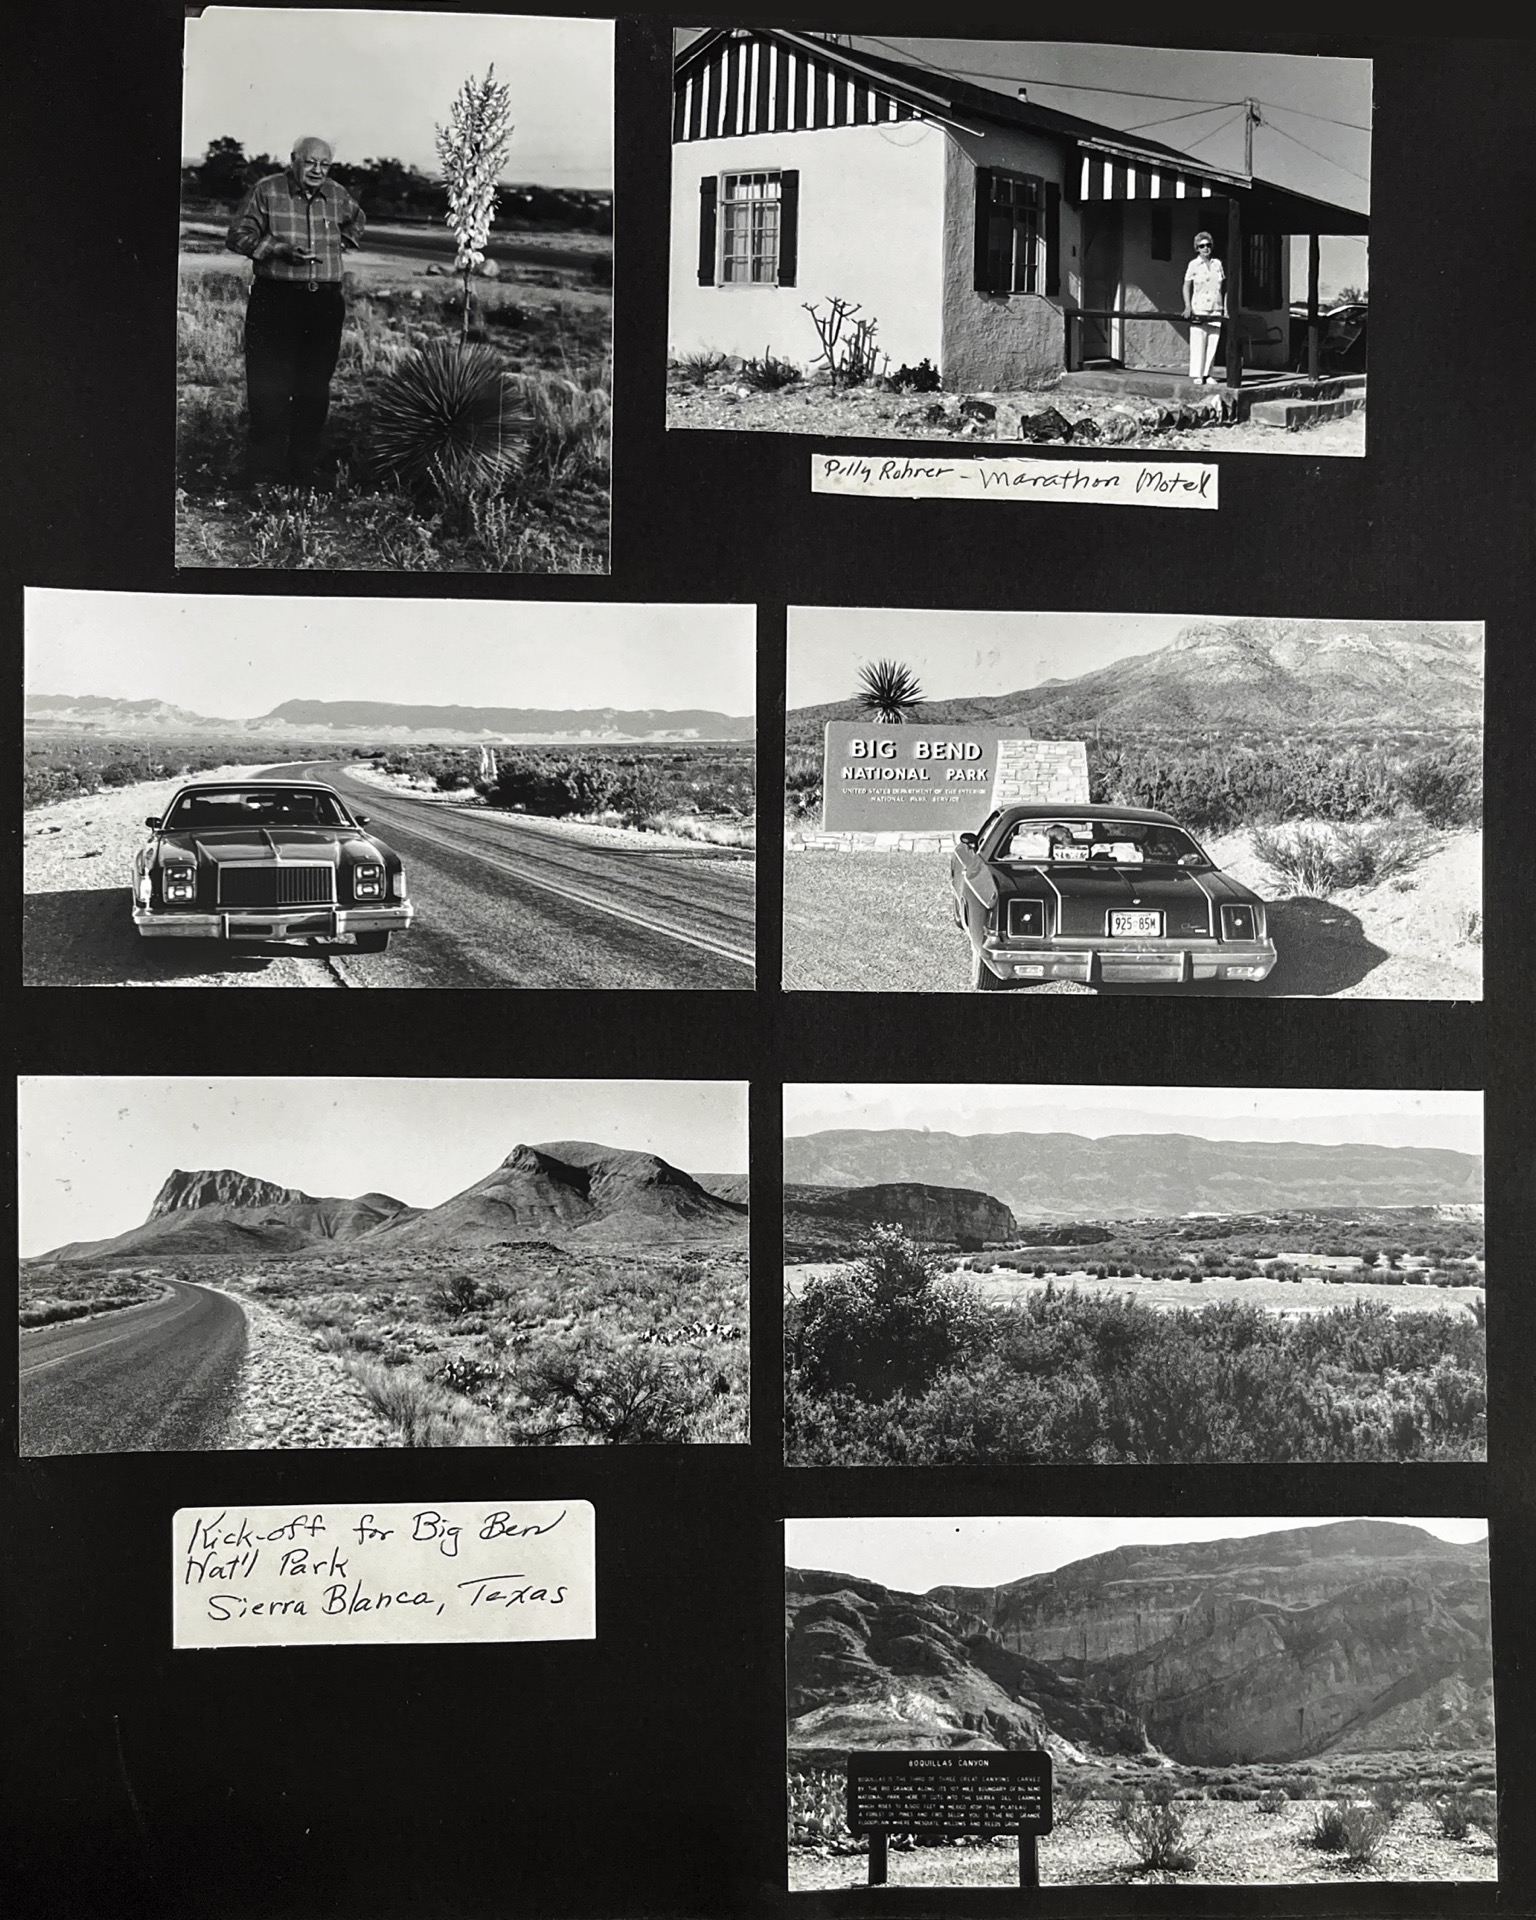 Pilly Rohrer - Marathon Motel
BIG BEND
NATIONAL PARK
UNITED STATES DEPARTMENT OF THE INTERIOR
NATIONAL PARK SERVICE
925-85M
Kick-off for Big Ben
Nat'l Park
Sierra Blanca, Texas
BOQUILLAS CANYON
BOQUILLAS IS THE THIRD OF THREE GREAT CANYONS CARVED
BY THE RIO GRANDE ALONG ITS 107 MILE BOUNDARY OF BIG BEND
NATIONAL PARK. HERE IT CUTS INTO THE SIERRA DEL CARMEN
WHICH RISES TO 8,500 FEET IN MEXICO. ATOP THE PLATEAU IS
A FOREST OF PINES AND FIRS. BELOW YOU IS THE RIO GRANDE
FLOODPLAIN WHERE MESQUITE, WILLOWS AND REEDS GROW.